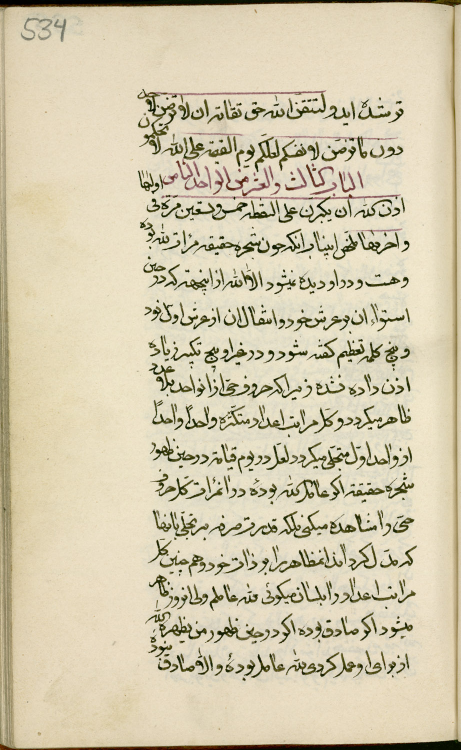 534
تر شده اید و لتتقن الله حق تقاته ان لا ترضن لاحد
دون ما ترضن لانفسکم لعلکم یوم القیمة علی الله لا تحکمون
الباب الثالث و العشر من الواحد الثامن
اذن الله ان یکبرن علی النقطه خمس و تسعین مرة فی اولها
و اخرها ملخص این باب انکه چون شجره حقیقه مرات لله بوده
و هست و در او دیده نمیشود الا الله از این جهت که در حین
استواء ان بر عرش خود و انتقال ان از عرش اول نود
و پنج کلمه تعظیم گفته شود و در غیر او پنج تکبیر زیاده
اذن داده نشده زیرا که حروف حی از ان واحد بلا عدد
ظاهر میگردد و کل مراتب اعداد متکثره واحدا واحدا
از واحد اول متجلی میگردد لعل در یوم قیامة در حین ظهور
شجره حقیقه اگر عامل لله بوده در ان مرات کل حروف
حی را مشاهده میکنی بلکه قدرت صرفه بر تجلی با بها
که مدل گردد ان مظاهر را بر ذات خود و هم چنین کل
مراتب اعداد را بلسان میگوئی لله عاملم ولی انروز ظاهر
میشود اگر صادق بوده اگر در حین ظهور من یظهره الله
از برای او عمل کردی لله عامل بوده و الا صادق نبوده